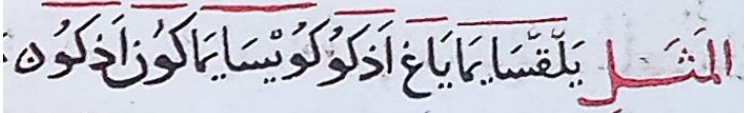 المَثَل يَلَّقسَّايمَا يَاغ اَذكُو كُويْسَا يمَا كُون اَذكُون